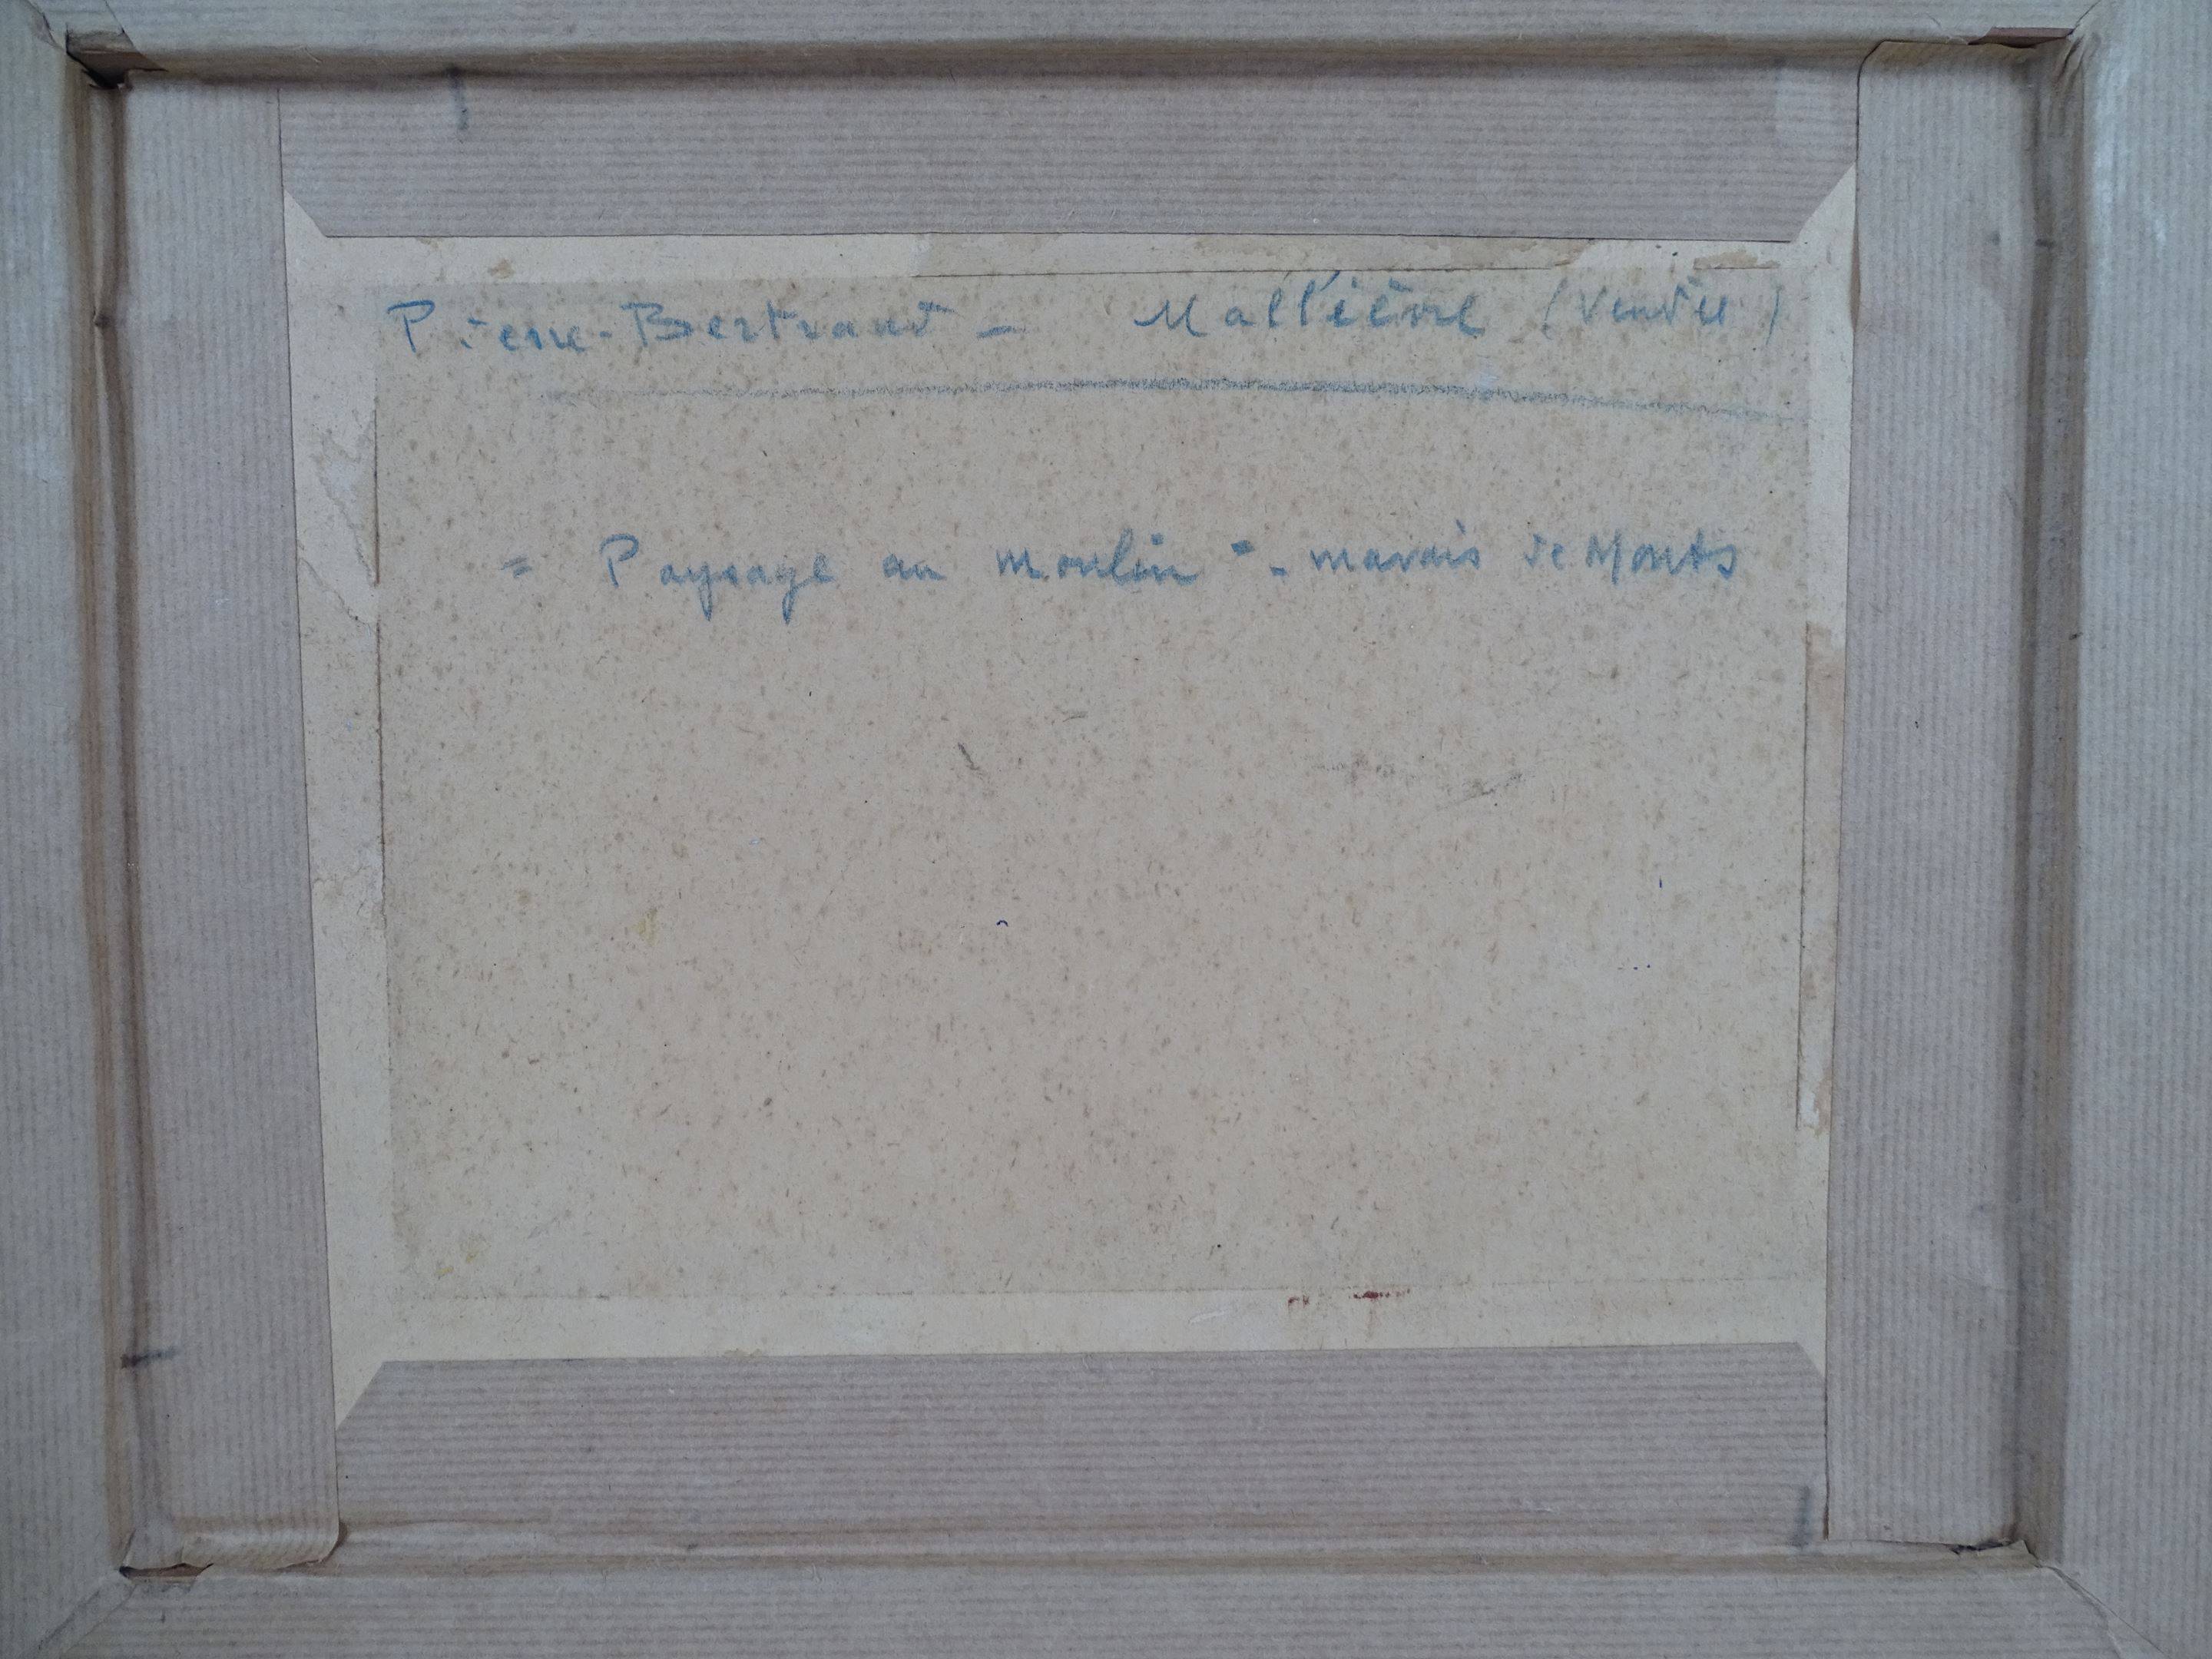 Pierre-Bertrand - Mallièvre (Vendée)
= Paysage au moulin " - marais de Monts